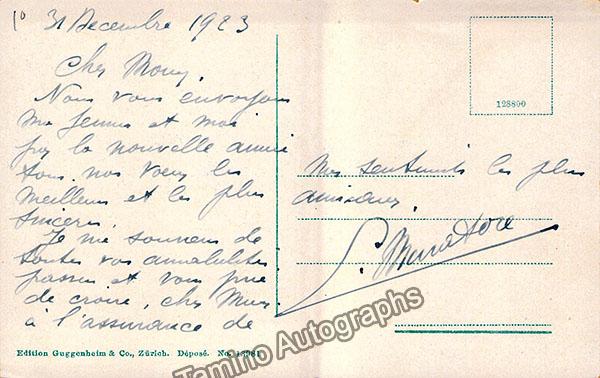 31 Decembre 1923
Cher Mony,
Nous vous envoyons
ma femme et moi
pour la nouvelle année
tous nos voeux les
meilleurs et les plus
sinceres.
Je me souviens de
toutes vos amabilités
passées et vous prie
de croire, cher
à l'assurance de
128800
Mes sentiments les plus
amicaux.
L. Muratore
Edition Guggenheim & Co., Zürich. Déposé. No. 13981
Tamino Autographs